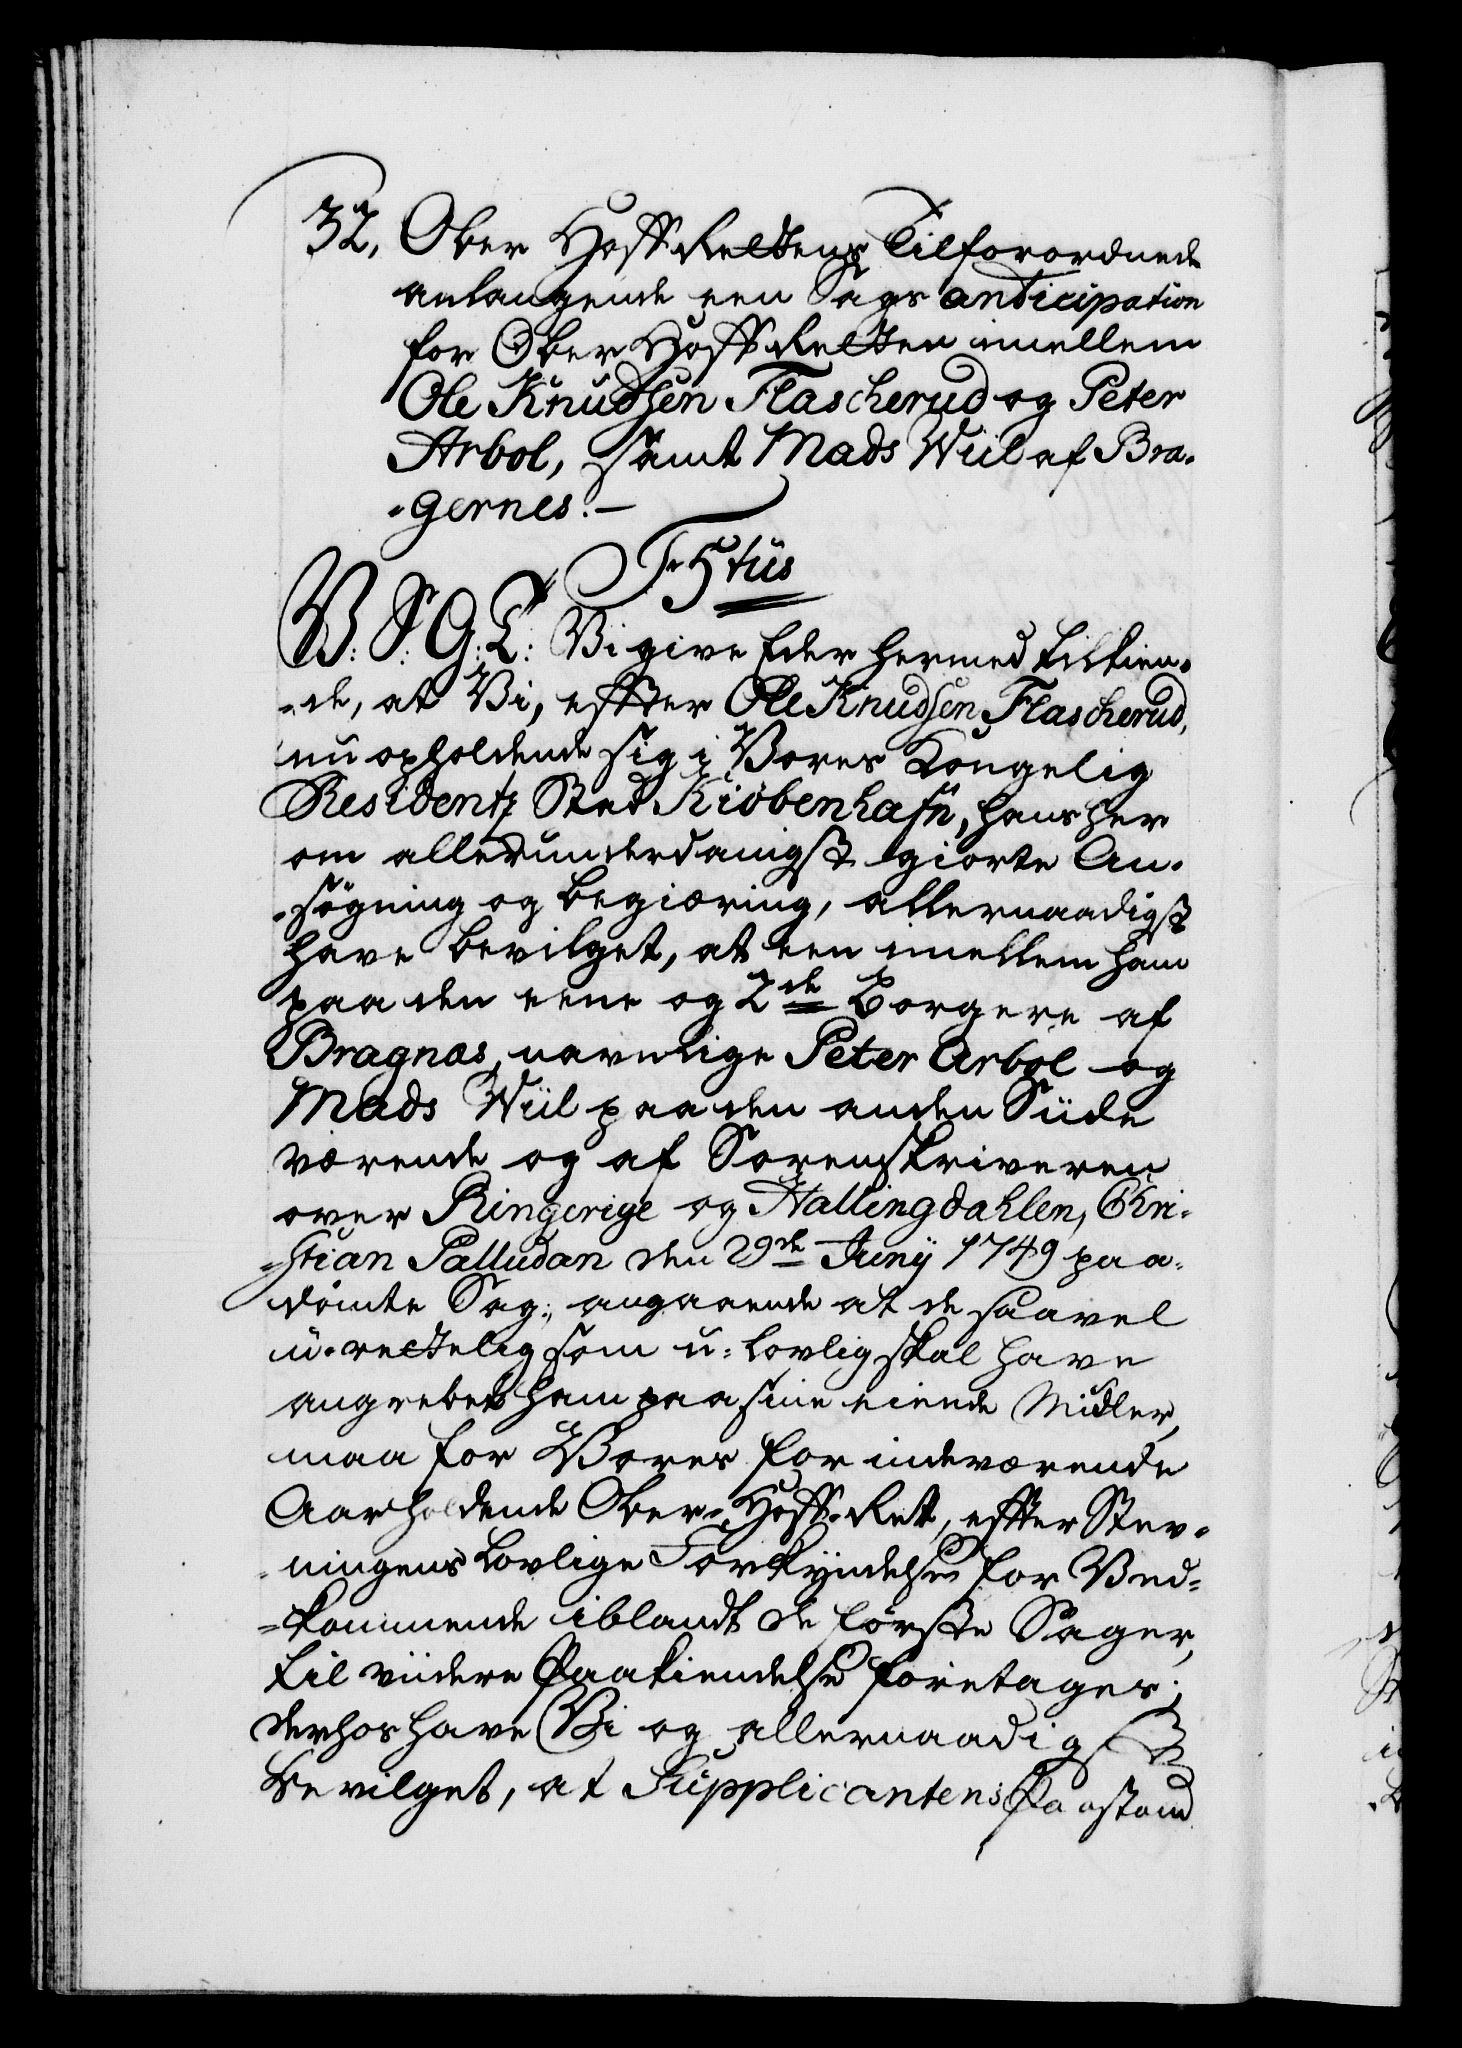 32, Ober Hoff Rettens Tilforordnede
anlangende een Sags anticipation
for Ober Hoff Retten imellem
Ole Knudsen Flascherud og Peter
Arbol, samt Mads Wiil af Bra-
-gernes.—
Fr 5tüs
V: S: G: T: Vi give Eder hermed tilkien-
-de, at Vi, effter Ole Knudsen Flascherud,
nu opholdende sig i Vores Kongelig
Residentz Stad Kiöbenhafn, hans her
om allerunderdanigst giorte An-
-søgning og begiæring, allernaadigst
have bevilget, at een imellem ham
paa den eene og 2de Borgere af
Bragnæs, navnlige Peter Arbol og
Mads Wiil paa den anden Siide
værende og af Sorenskriveren
over Ringerige og Hallingdahlen, Chri-
-stian Palludan den 29de Junÿ 1749 paa-
dömte Sag, angaaende at de saavel
u-rettelig som u-lovlig skal have
angrebet ham paa sine eiende Midler,
maa for Vores for indeværende
Aar holdende Ober-Hoff-Rett, effter Stev-
-ningens lovlige Forkyndelse for Ved-
-kommende iblandt de første Sager,
til viidere Paakiendelse foretages;
derhos have Vi og allernaadigst
bevilget, at Supplicantens Paastand